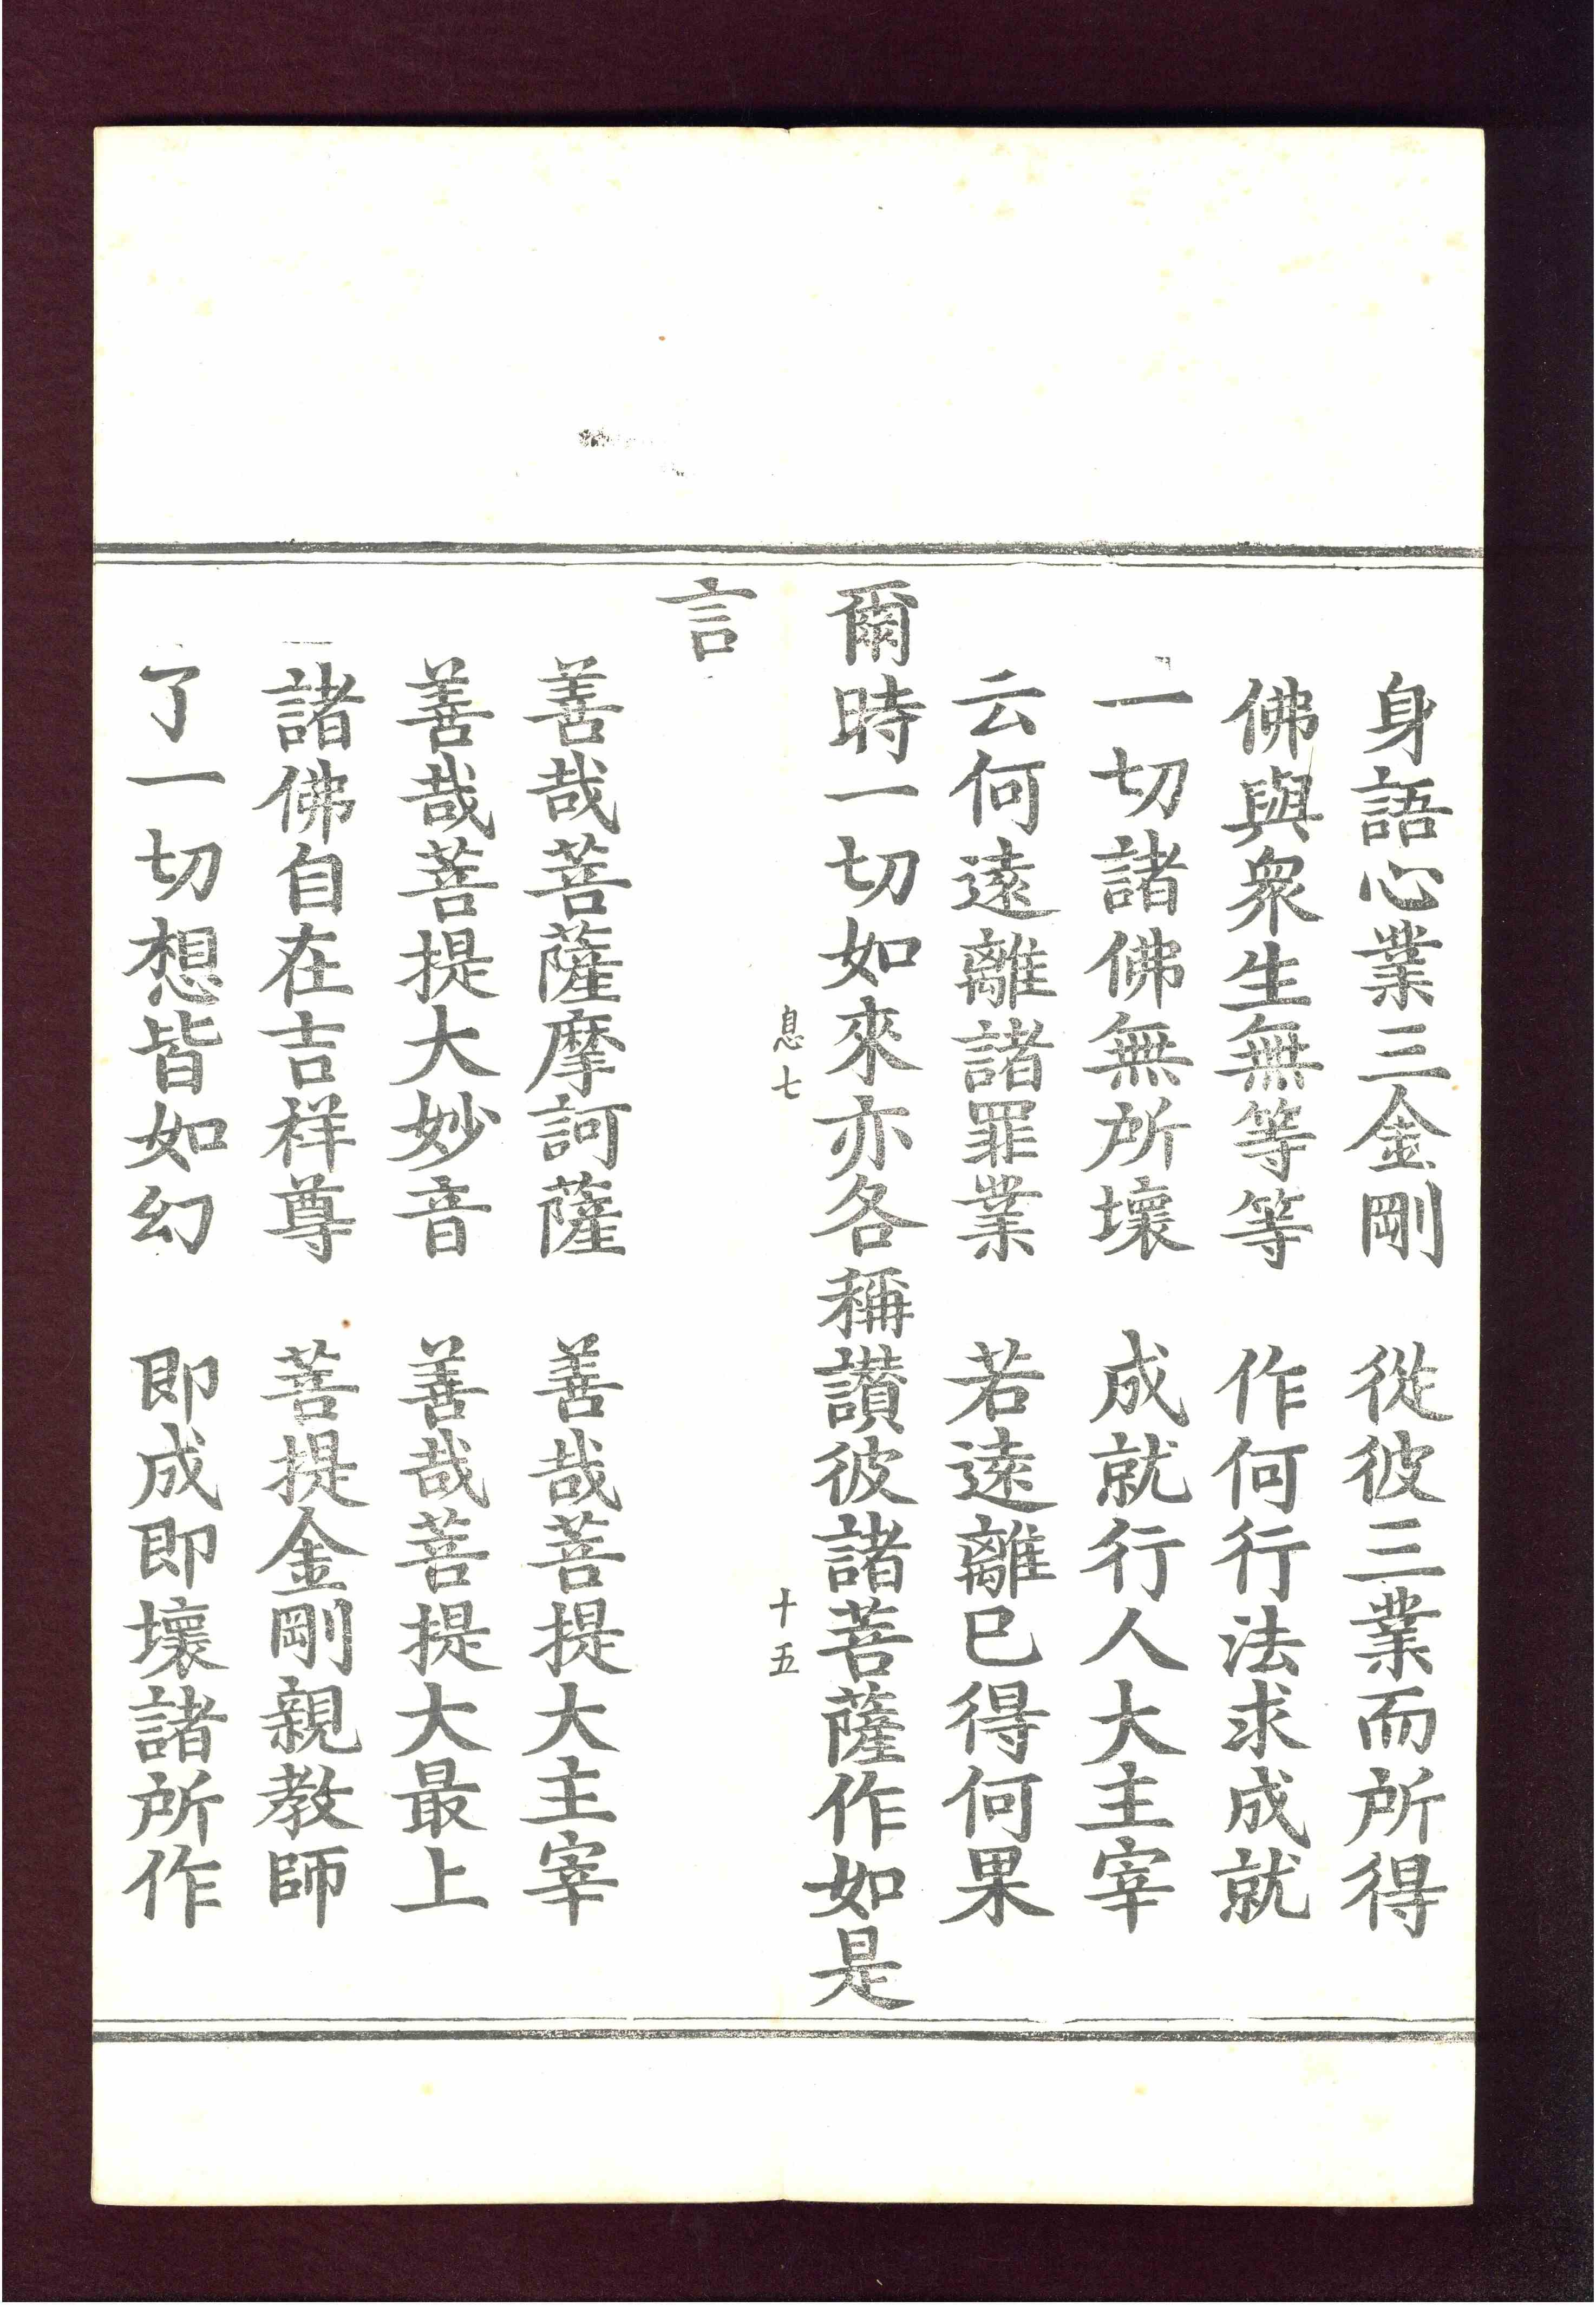 身語心業三金剛　從彼三業而所得
佛與衆生無等等　作何行法求成就
一切諸佛無所壞　成就行人大主宰
云何遠離諸罪業　若遠離巳得何果
爾時一切如來亦各稱讚彼諸菩薩作如是
息七　十五
言
善哉菩薩摩訶薩　善哉菩提大主宰
善哉菩提大妙音　善哉菩提大最上
諸佛自在吉祥尊　菩提金剛親教師
了一切想皆如幻　即成即壞諸所作